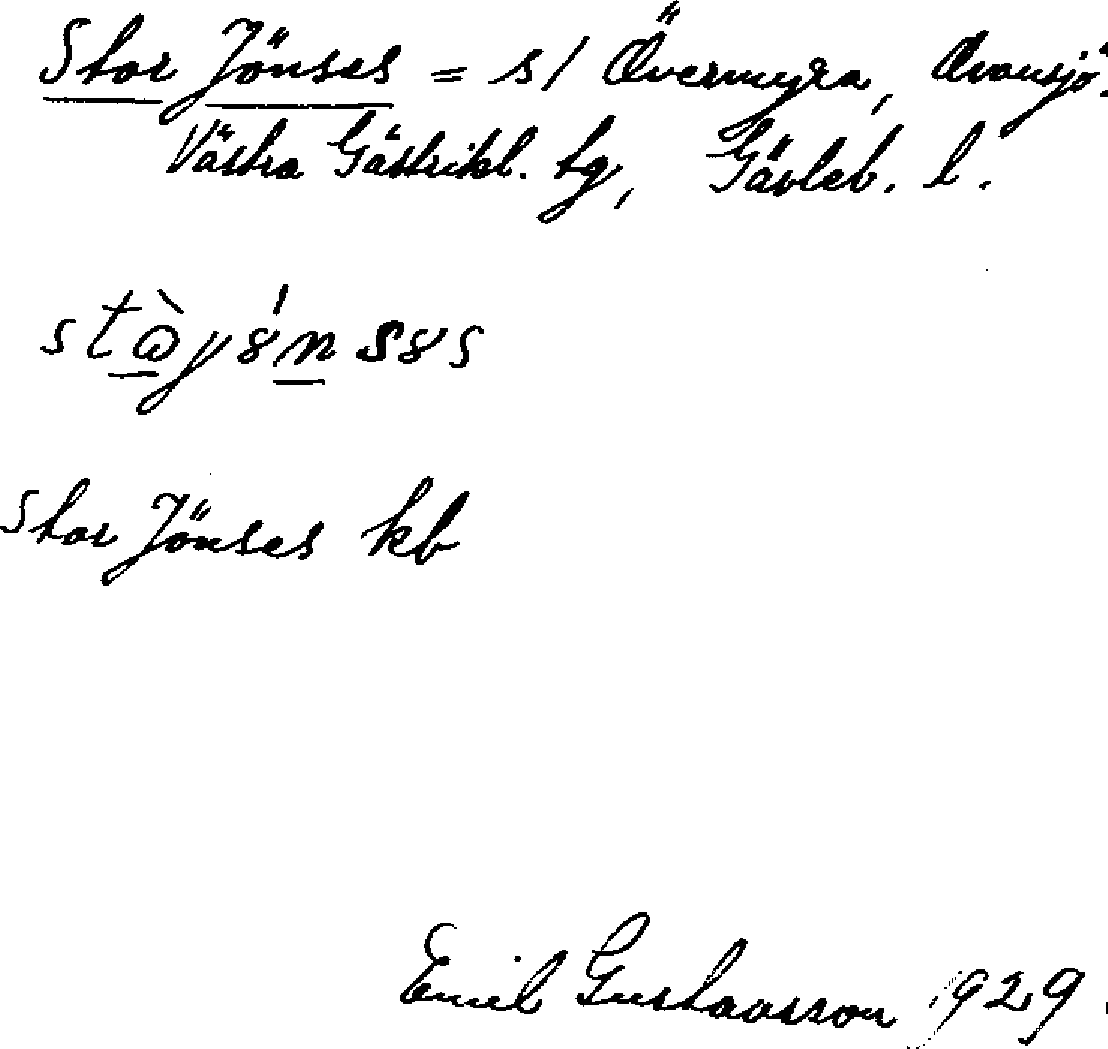 Stor Jönses = s/ Övermyra, Ovansjö.
Västra Gästrikl. tg, Gävleb. l.
Stor Jönses kb
Emil Gustavsson 1929.